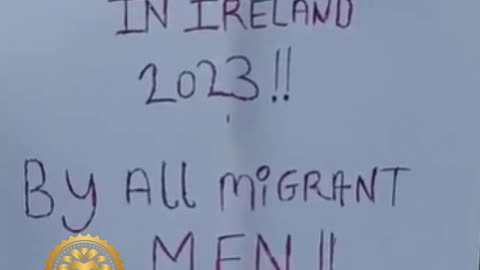 IN IRELAND
2023!!
By All MiGRANT
MEN!!